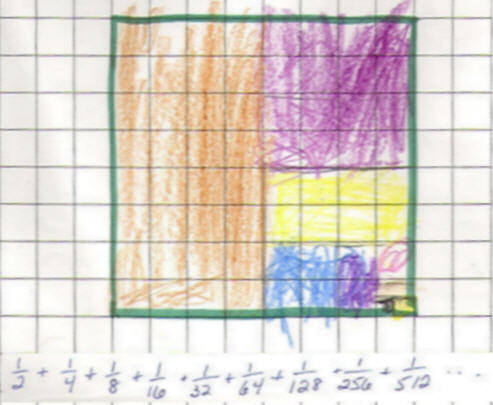 1/2 + 1/4 + 1/8 + 1/16 + 1/32 + 1/64 + 1/128 + 1/256 + 1/512 ...